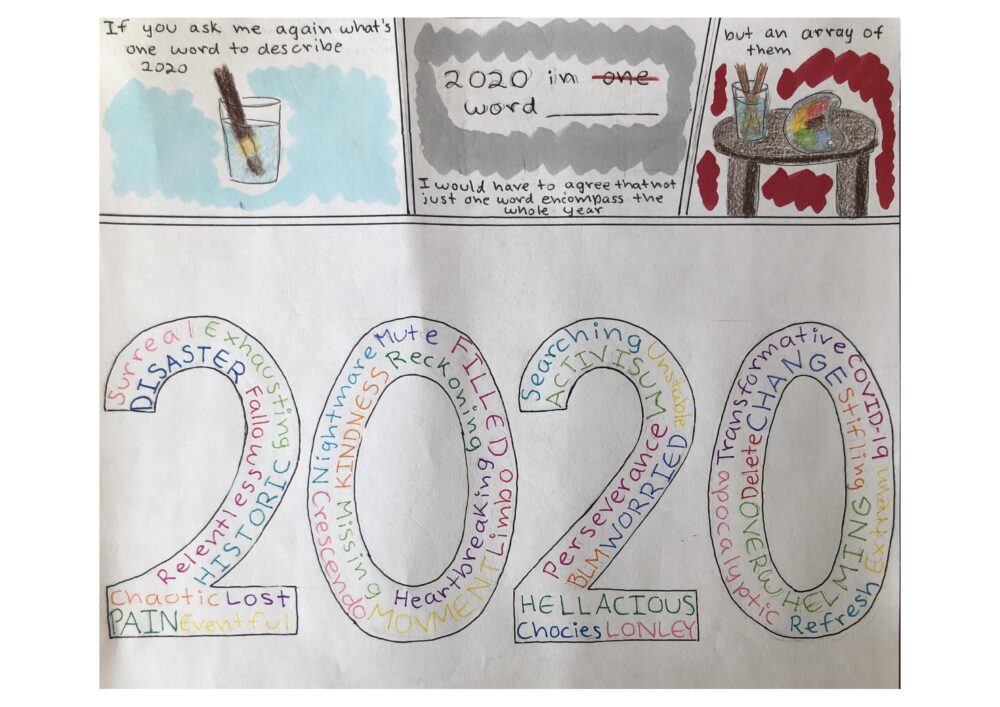 If you ask me again what's
one word to describe
2020
2020 in one
word
I would have to agree that not
just one word encompass the
whole year
but an array of
them
Surreal Exhausting
DISASTER
Fallow
Relentless
HISTORIC
Chaotic Lost
PAIN Eventful
Nightmare Mute FILLED
KINDNESS Reckoning
Crescendo Missing
Heartbreaking Limbo
MOVMENT
Searching Unstable
ACTIVISUM
Perseverance
BLM WORRIED
HELLACIOUS
Chocies LONLEY
Transformative COVID-19
Delete CHANGE Stifling
Extrem
NO
OVERWHELMING
Apocalyptic
Refresh